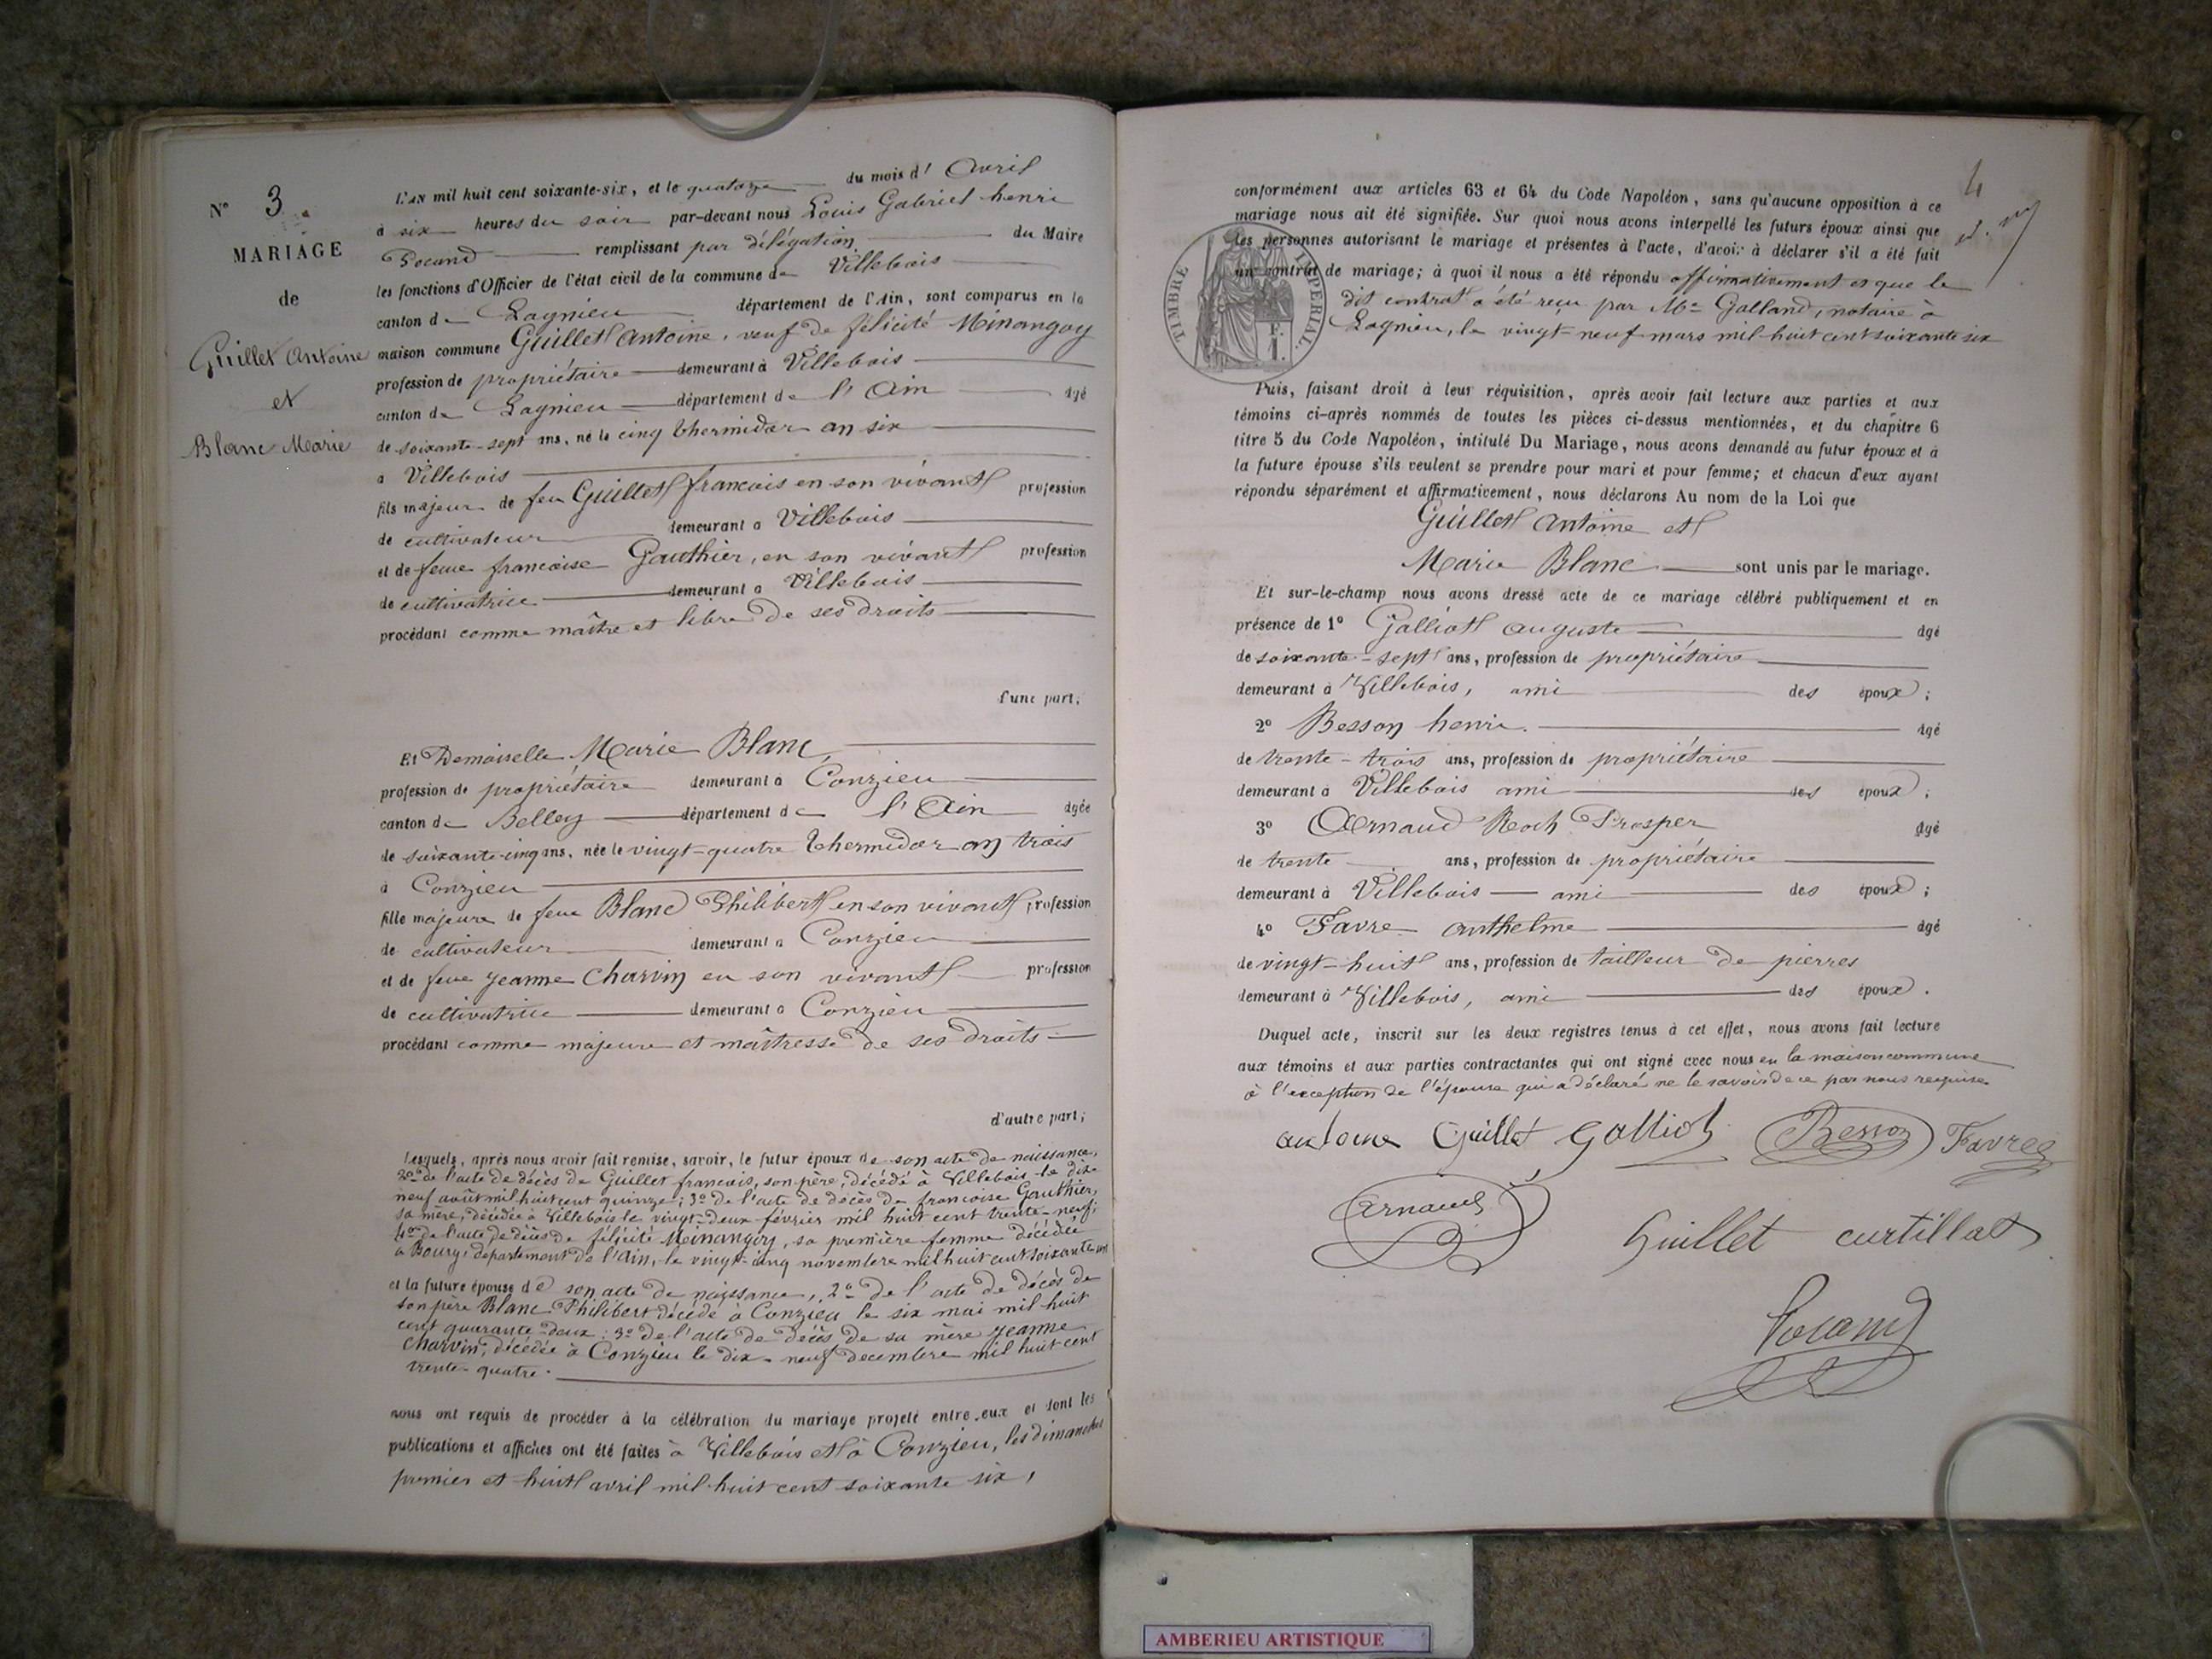 N° 3.
MARIAGE
de
Guillet Antoine
et
Blanc Marie
L'AN mil huit cent soixante-six, et le quatorze du mois d' Avril
à six heures du soir par-devant nous Louis Gabriel henri
Pocand remplissant par délégation du Maire
les fonctions d'Officier de l'état civil de la commune de Villebois
canton de Lagnieu département de l'Ain, sont comparus en la
maison commune Guillet Antoine, veuf de félicité Minangoy
profession de propriétaire demeurant à Villebois
canton de Lagnieu département de l'Ain âgé
de soixante-sept ans, né le cinq thermidor an six
à Villebois
fils majeur de feu Guillet francois en son vivant profession
de cultivateur demeurant à Villebois
et de feue francoise Gauthier, en son vivant profession
de cultivatrice demeurant à Villebois
procédant comme maître et libre de ses droits
d'une part;
Et Demoiselle Marie Blanc,
profession de propriétaire demeurant à Conzieu
canton de Belley département de l'Ain âgée
de soixante-cinq ans, née le vingt-quatre thermidor an trois
à Conzieu
fille majeure de feu Blanc Philibert en son vivant profession
de cultivateur demeurant à Conzieu
et de feue jeanne Charvin en son vivant profession
de cultivatrice demeurant à Conzieu
procédant comme majeure et maîtresse de ses droits
d'autre part;
Lesquels, après nous avoir fait remise, savoir, le futur époux de son acte de naissance,
2° de l'acte de décès de Guillet francois, son père, décédé à Villebois le dix-
neuf août mil huit cent quinze; 3° de l'acte de décès de francoise Gauthier,
sa mère, décédée à Villebois le vingt-deux février mil huit cent trente-neuf;
4° de l'acte de décès de félicité Minangoy, sa première femme décédée
à Bourg, département de l'Ain, le vingt-cinq novembre mil huit cent soixante
et la future épouse de son acte de naissance, 2° de l'acte de décès de
son père Blanc Philibert décédé à Conzieu le six mai mil huit
cent quarante-deux; 3° de l'acte de décès de sa mère jeanne
Charvin, décédée à Conzieu le dix-neuf decembre mil huit cent
trente-quatre.
nous ont requis de procéder à la célébration du mariage projeté entre eux et dont les
publications et affiches ont été faites à Villebois et à Conzieu, les dimanches
premier et huit avril mil huit cent soixante six,
4
conformément aux articles 63 et 64 du Code Napoléon, sans qu'aucune opposition à ce
mariage nous ait été signifiée. Sur quoi nous avons interpellé les futurs époux ainsi que
les personnes autorisant le mariage et présentes à l'acte, d'avoir à déclarer s'il a été fait
un contrat de mariage; à quoi il nous a été répondu affirmativement et que le
dit contrat a été reçu par Me Galland, notaire à
Lagnieu, le vingt-neuf mars mil huit cent soixante six
TIMBRE IMPERIAL.
1 F.
Puis, faisant droit à leur réquisition, après avoir fait lecture aux parties et aux
témoins ci-après nommés de toutes les pièces ci-dessus mentionnées, et du chapitre 6
titre 5 du Code Napoléon, intitulé Du Mariage, nous avons demandé au futur époux et à
la future épouse s'ils veulent se prendre pour mari et pour femme; et chacun d'eux ayant
répondu séparément et affirmativement, nous déclarons Au nom de la Loi que
Guillet Antoine et
Marie Blanc sont unis par le mariage.
Et sur-le-champ nous avons dressé acte de ce mariage célébré publiquement et en
présence de 1° Galliot auguste âgé
de soixante-sept ans, profession de propriétaire
demeurant à Villebois, ami des époux;
2° Besson henri. âgé
de trente-trois ans, profession de propriétaire
demeurant à Villebois ami des époux;
3° Arnaud Roch Prosper âgé
de trente ans, profession de propriétaire
demeurant à Villebois ami des époux;
4° Favre anthelme âgé
de vingt-huit ans, profession de tailleur de pierres
demeurant à Villebois, ami des époux.
Duquel acte, inscrit sur les deux registres tenus à cet effet, nous avons fait lecture
aux témoins et aux parties contractantes qui ont signé avec nous en la maison commune
à l'exception de l'épouse qui a déclaré ne le savoir de ce par nous requise.
antoine Guillet Galliot Besson Favre
Arnaud
Guillet curtillat
Pocand
AMBERIEU ARTISTIQUE